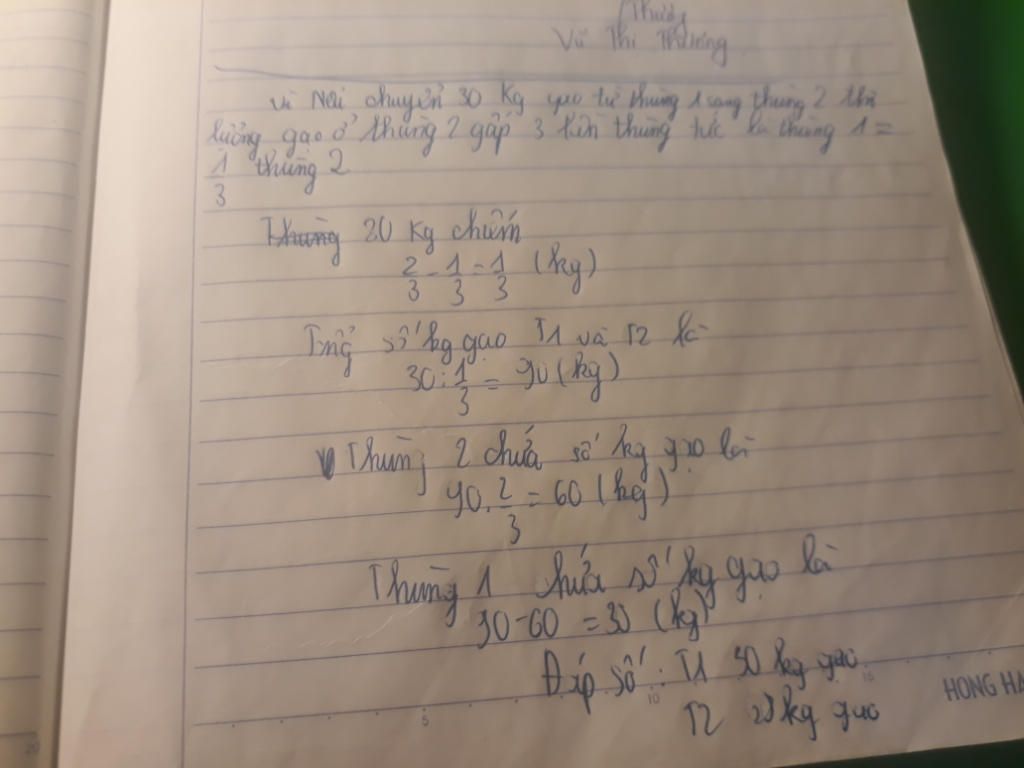 Vũ Thị Thương
Vì Nếu chuyển 30 kg gạo từ thùng 1 sang thùng 2 thì
lượng gạo ở thùng 2 gấp 3 lần thùng tức là thùng 1 =
1/3 thùng 2
Thùng 20 kg chiếm
2/3 - 1/3 = 1/3 (kg)
Tổng số kg gạo T1 và T2 là
30 : 1/3 = 90 (kg)
Thùng 2 chứa số kg gạo là
90 . 2/3 = 60 (kg)
Thùng 1 chứa số kg gạo là
90 - 60 = 30 (kg)
Đáp số : T1 30 kg gạo
T2 kg gạo
HONG HA